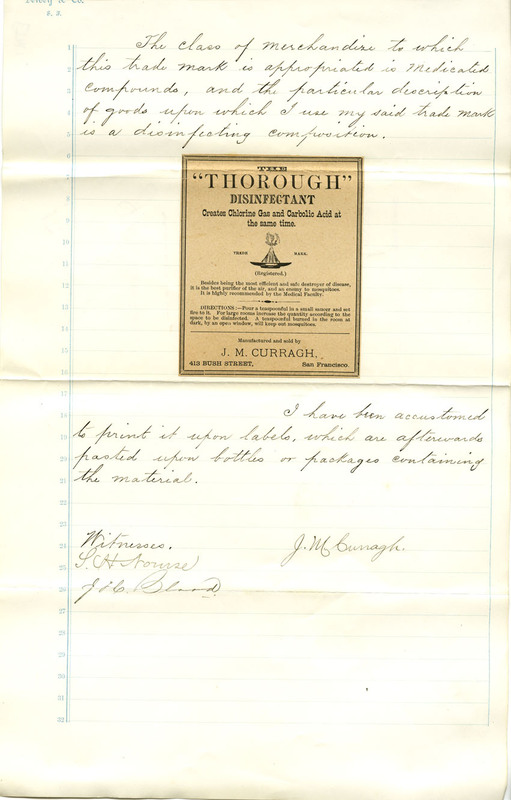 The class of merchandize to which
this trade mark is appropriated is Medicated
compounds, and the particular description
of goods upon which I use my said trade mark
is a disinfecting composition.
THE
"THOROUGH"
DISINFECTANT
Creates Chlorine Gas and Carbolic Acid at
the same time.
TRADE MARK.
(Registered.)
Besides being the most efficient and safe destroyer of disease,
it is the best purifier of the air, and an enemy to mosquitoes.
It is highly recommended by the Medical Faculty.
DIRECTIONS:—Pour a teaspoonful in a small saucer and set
fire to it. For large rooms increase the quantity according to the
space to be disinfected. A teaspoonful burned in the room at
dark, by an open window, will keep out mosquitoes.
Manufactured and sold by
J. M. CURRAGH,
413 BUSH STREET, San Francisco.
I have been accustomed
to print it upon labels, which are afterwards
pasted upon bottles or packages containing
the material.
Witnesses. J. M. Curragh.
S. H. Nourse
Blood
1
2
3
4
5
6
7
8
9
10
11
12
13
14
15
16
17
18
19
20
21
22
23
24
25
26
27
28
29
30
31
32